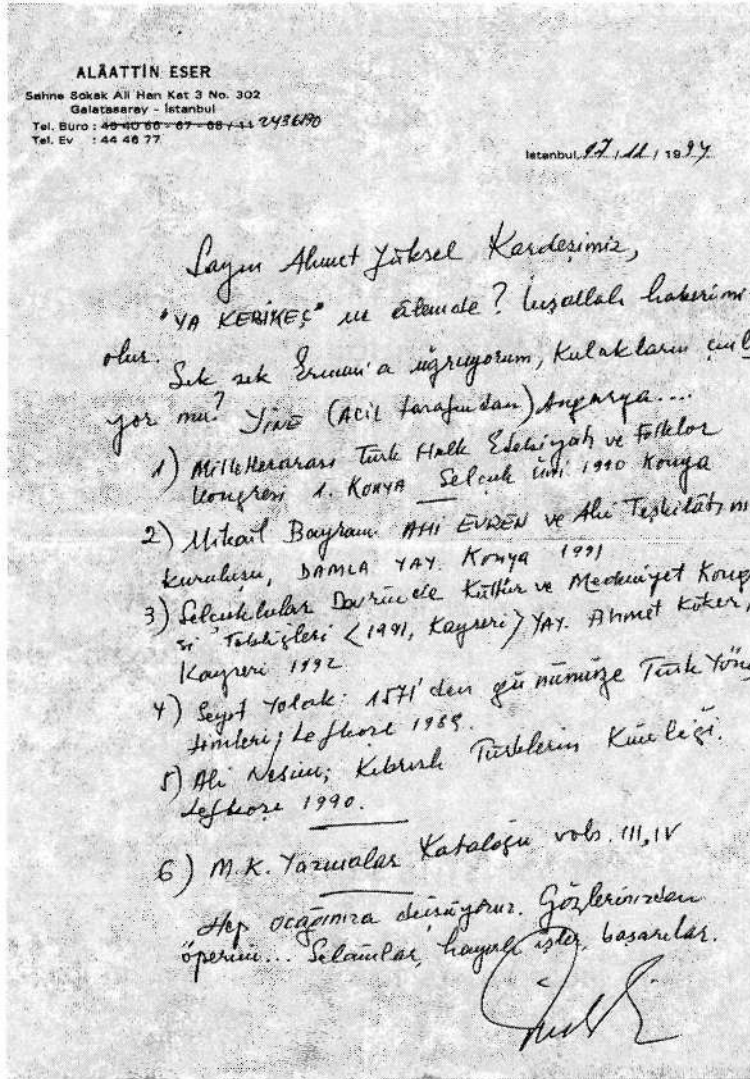 ALÂATTİN ESER
Sahne Sokak Ali Han Kat 3 No. 302
Galatasaray - İstanbul
Tel. Büro : 49 40 66 - 67 - 68 / 11 2436190
Tel. Ev : 44 46 77
İstanbul, 27 / 11 / 1994
Sayın Ahmet Yüksel Kardeşimiz,
"YA KEBİKEÇ" ne âlemde? İnşallah haberimi
olur.
Sık sık Erman'a uğruyorum, Kulakların çınlı
yor mu? YİNE (ACİL tarafından) Angarya....
1) Milletlerarası Türk Halk Edebiyatı ve Folklor
Kongresi 1. KONYA Selçuk Üni 1990 Konya
2) Mikail Bayram. AHİ EVREN ve Ahi Teşkilâtı nı
kuruluşu, DAMLA YAY. Konya 1991
3) Selçuklular Devrinde Kültür ve Medeniyet Kong
si Tebliğleri <1991, Kayseri> YAY. Ahmet Köker,
Kayseri 1992
4) Seyit Yolak: 1571'den günümüze Türk Yöne
timleri; Lefkoşe 1989.
5) Ali Nesim; Kıbrıslı Türklerin Kimliği.
Lefkoşe 1990.
6) M.K. Yazmalar Kataloğu vols. III, IV
Hep ocağınıza düşüyoruz. Gözlerinizden
öperim... Selâmlar, hayırlı işler, başarılar.